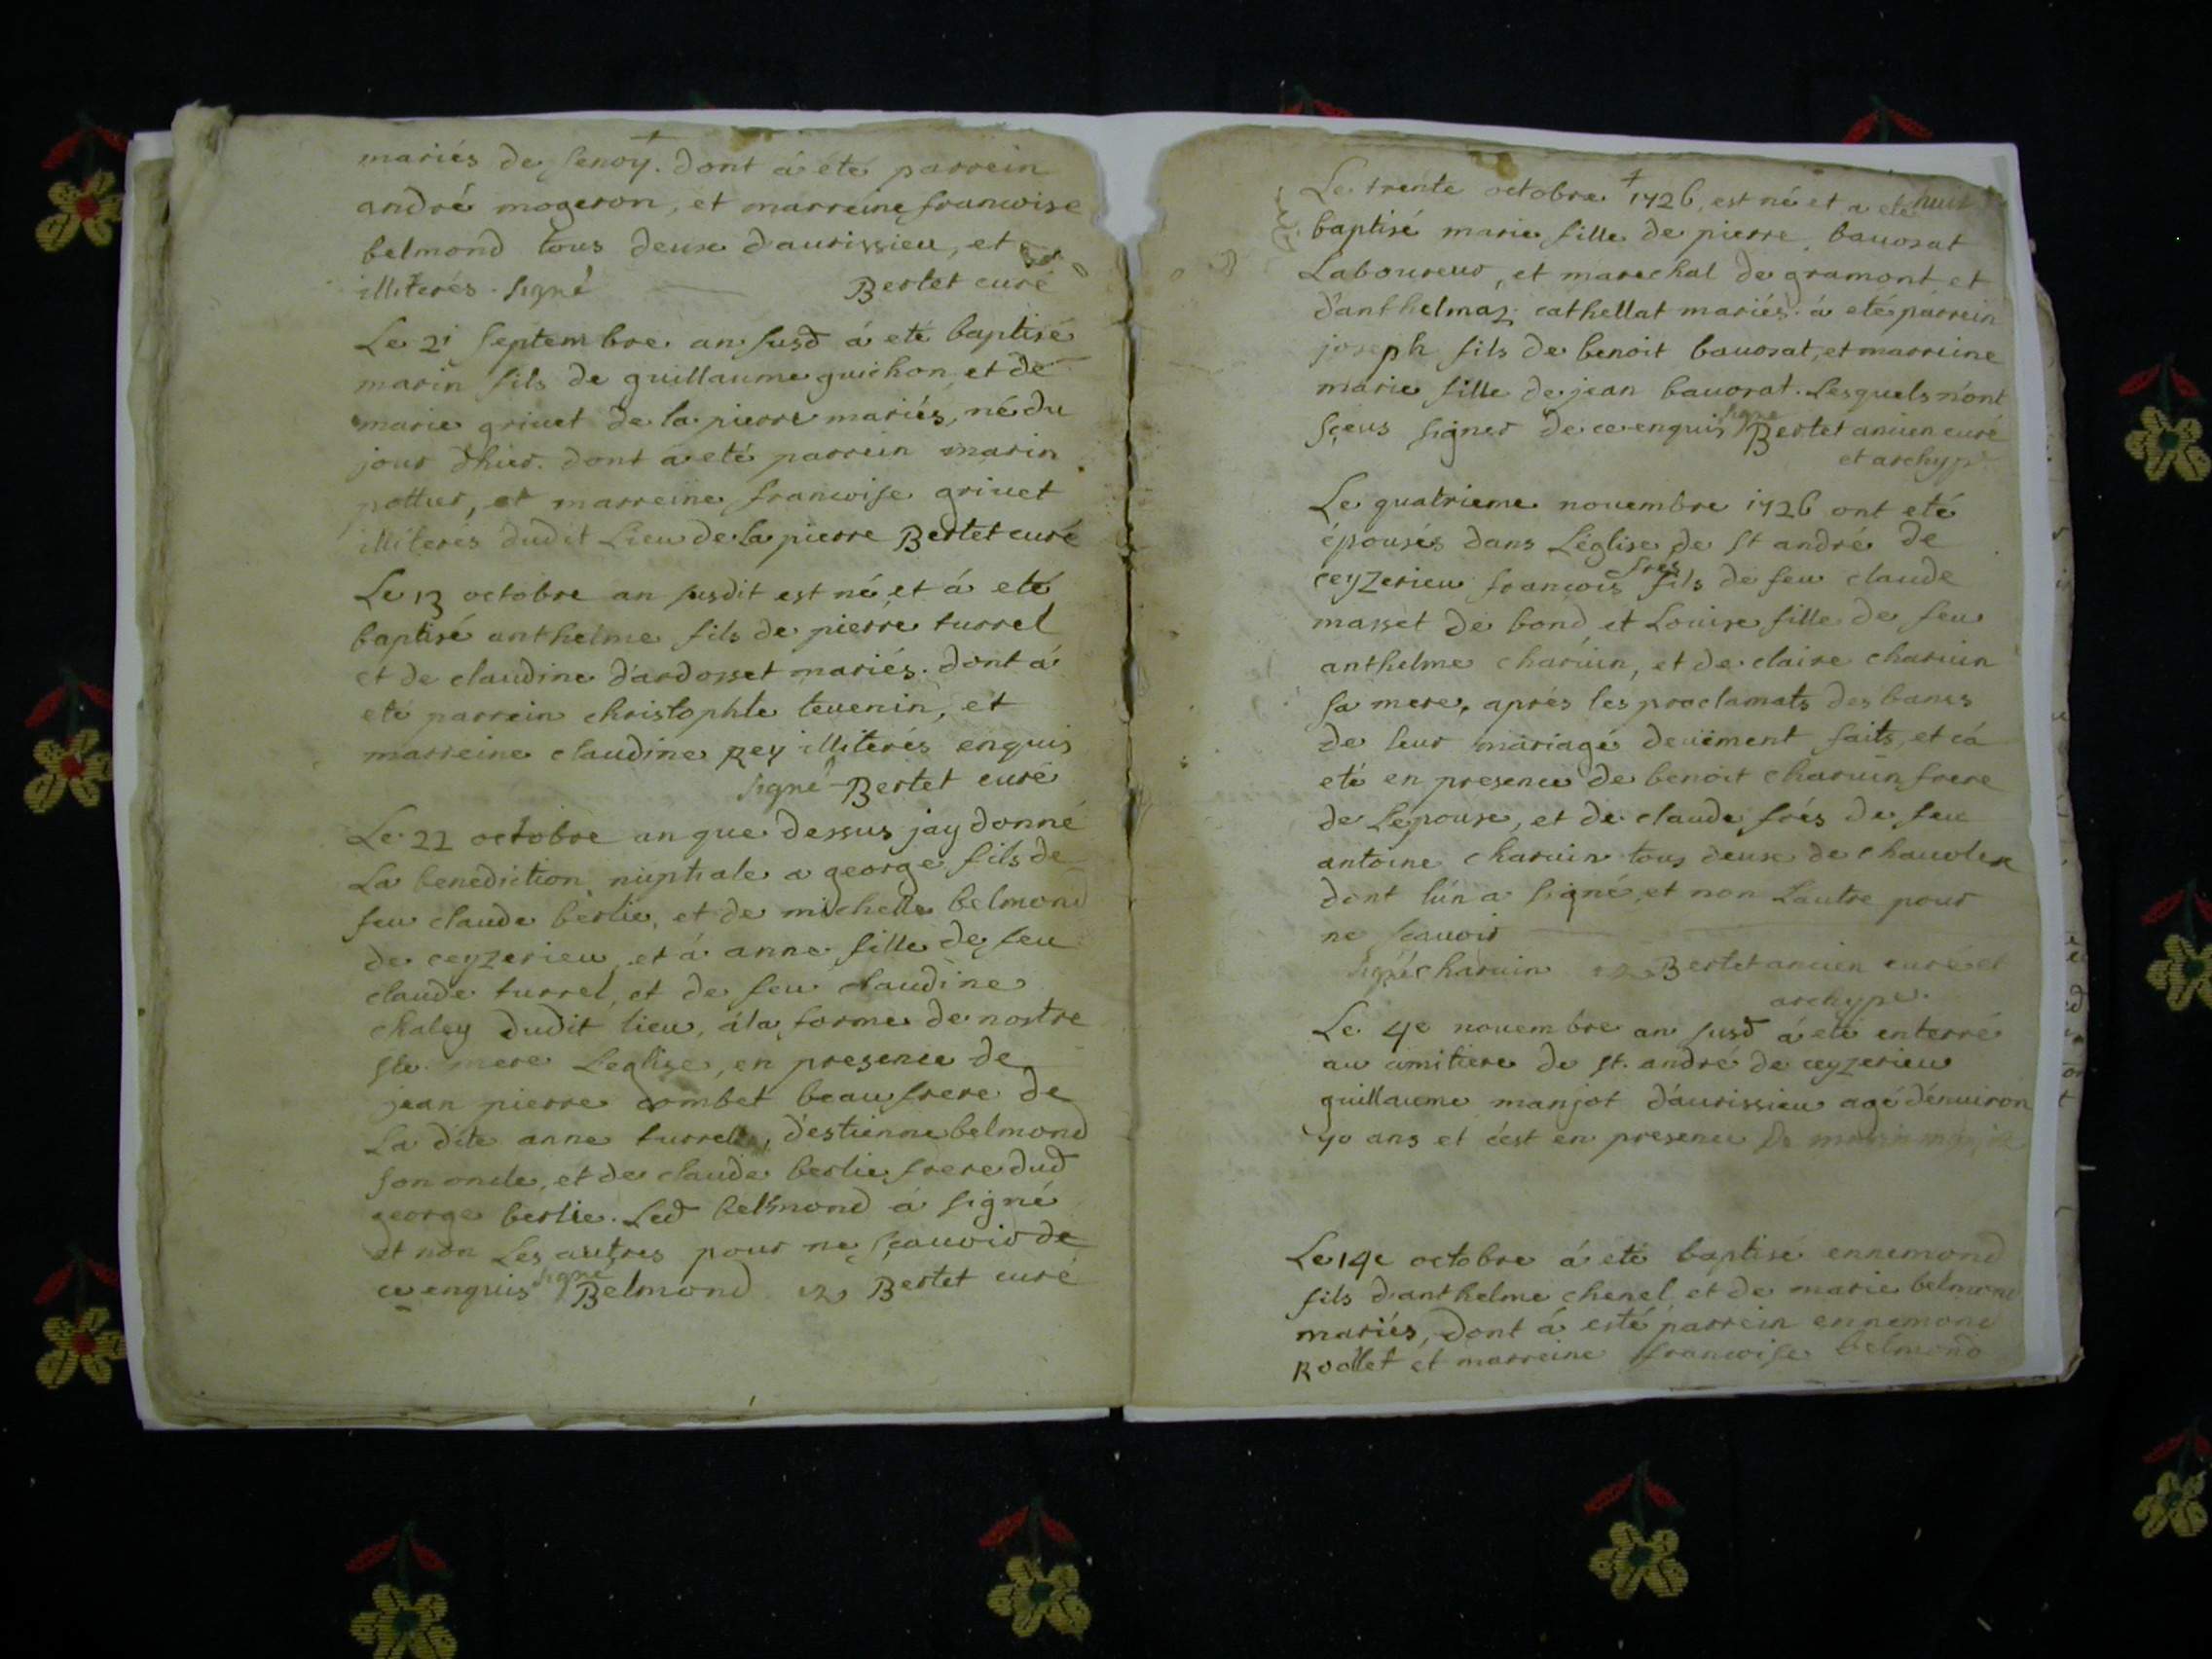 mariés de senoy. dont á été parrein
andré mogeron, et marreine francoise
belmond tous deux d'aurissieu, et
illiterés. signé Bertet curé
Le 21 septembre an susd á eté baptisé
marin fils de guillaume guichon, et de
marie grivet de la pierre mariés, né du
jour d'hier. dont a eté parrein marin
pottier, et marreine francoise grivet
illiterés dudit Lieu de la pierre Bertet curé
Le 13 octobre an susdit est né et á eté
baptisé anthelme fils de pierre turrel
et de claudine d'ardosset mariés. dont á
eté parrein christophle tevenin, et
marreine claudine Rey illiterés enquis
signé Bertet curé
Le 22 octobre an que dessus jay donné
La benediction nuptiale a george fils de
feu claude berlie, et de michelle belmond
de ceyzerieu, et á anne fille de feu
claude turrel, et de feu claudine
chaley dudit lieu, á la forme de nostre
ste mere L'eglise, en presence de
jean pierre combet beaufrere de
La dite anne turrel, d'estienne belmond
son oncle, et de claude berlie frere dud
george berlie. Led belmond á signé
et non Les autres pour ne sçavoir de
ce enquis signé Belmond Bertet curé
Le trente octobre 1726, est né et a eté huit
baptisé marie fille de pierre bavosat
Laboureur, et marechal de gramont et
d'anthelmaz cathellat mariés. á eté parrein
joseph fils de benoit bavosat, et marreine
marie fille de jean bavorat. Lesquels n'ont
sçeus signer de ce enquis signé Bertet ancien curé
et archyp
Le quatrieme novembre 1726 ont eté
épousés dans L'église de st andré de
ceyzerieu francois fres fils de feu claude
masset de bond, et Louise fille de feu
anthelme charvin, et de claire charvin
sa mere, aprés les proclamats des bancs
de leur mariage deuëment faits, et cá
eté en presence de benoit charvin frere
de Lepouse, et de claude frés de feu
antoine charvin tous deux de chavolex
dont l'ún a signé, et non L'autre pour
ne scavoir
signé charvin Bertet ancien curé et
archypr.
Le 4e novembre an susd á eté enterré
au cimitiere de st. andré de ceyzerieu
guillaume manjot d'aurissieu agé d'environ
70 ans et c'est en presence de
Le 14e octobre á eté baptisé ennemond
fils d'anthelme chenel, et de marie belmond
mariés, dont á esté parrein ennemond
Rollet et marreine francoise belmond